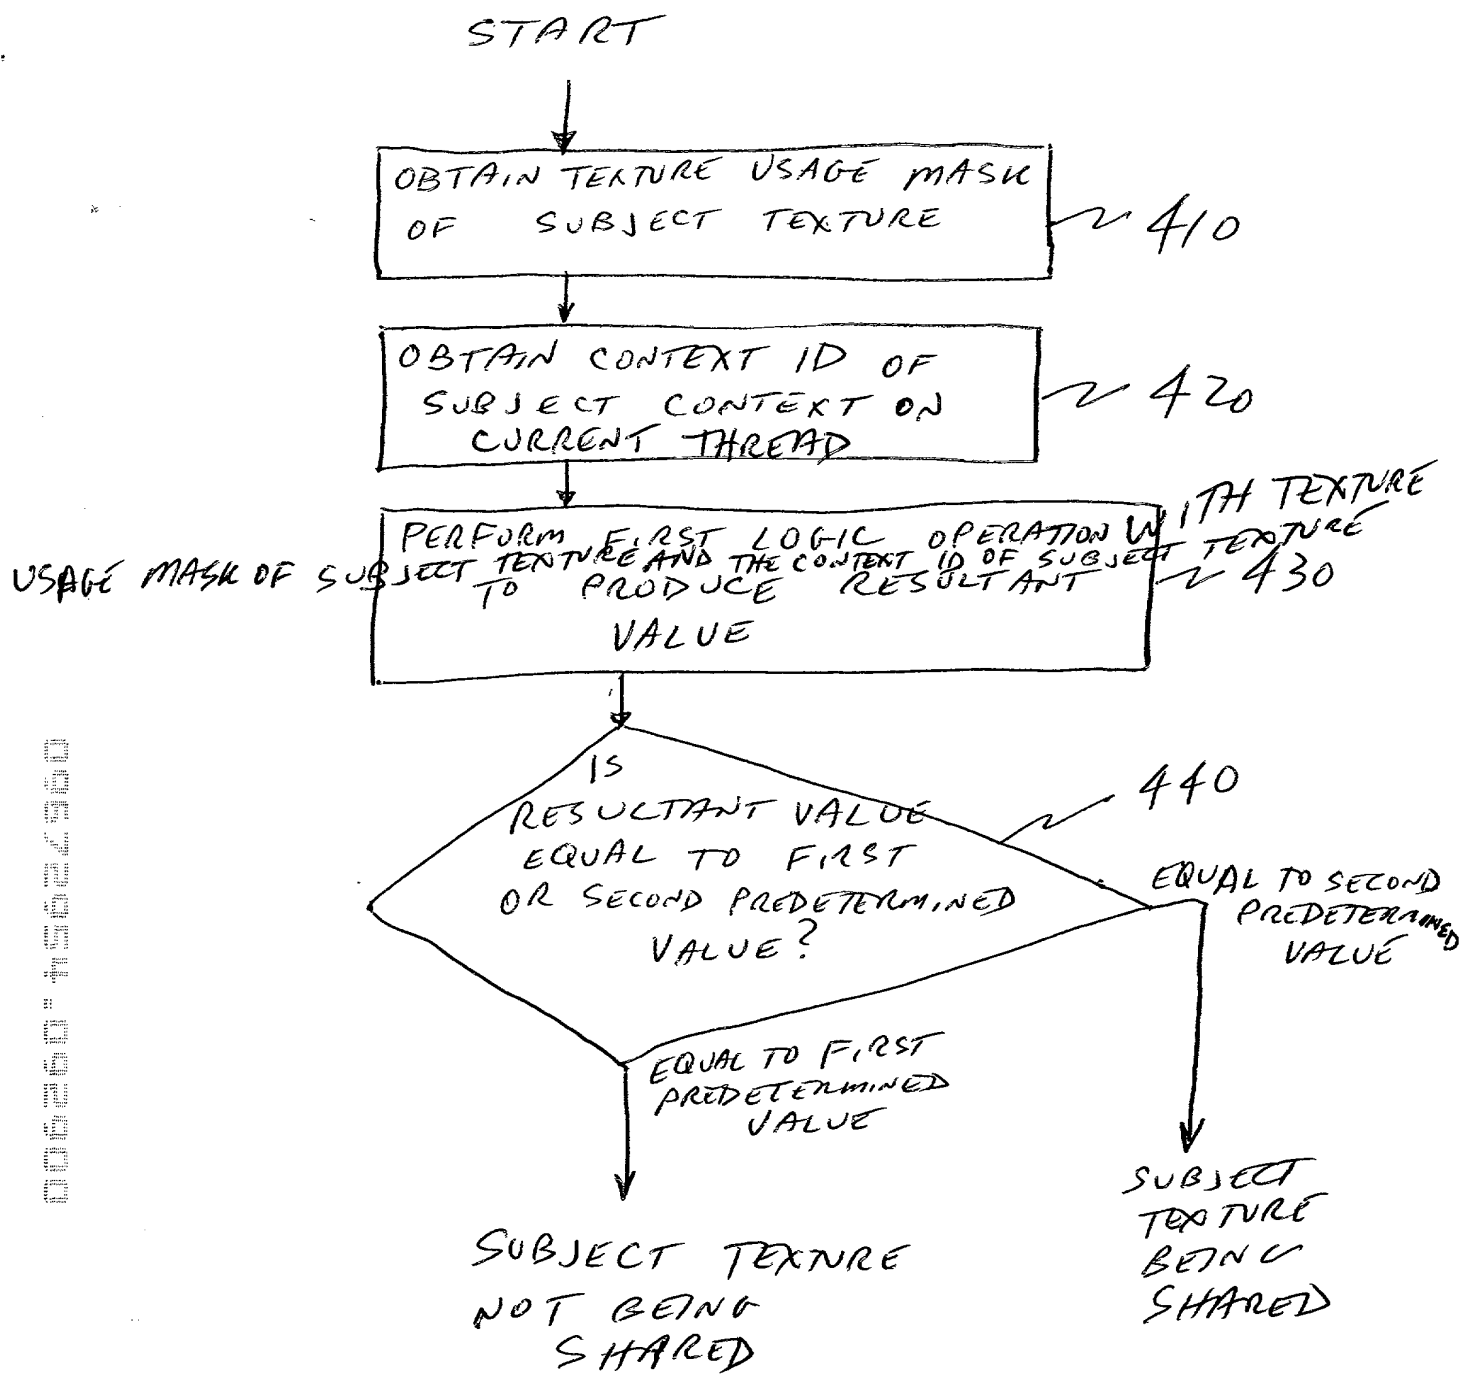 START
OBTAIN TEXTURE USAGE MASK
OF SUBJECT TEXTURE
410
OBTAIN CONTEXT ID OF
SUBJECT CONTEXT ON
CURRENT THREAD
420
PERFORM FIRST LOGIC OPERATION WITH TEXTURE
USAGE MASK OF SUBJECT TEXTURE AND THE CONTEXT ID OF SUBJECT TEXTURE
TO PRODUCE RESULTANT
VALUE
430
IS
RESULTANT VALUE
EQUAL TO FIRST
OR SECOND PREDETERMINED
VALUE?
440
EQUAL TO SECOND
PREDETERMINED
VALUE
EQUAL TO FIRST
PREDETERMINED
VALUE
SUBJECT
TEXTURE
BEING
SHARED
SUBJECT TEXTURE
NOT BEING
SHARED